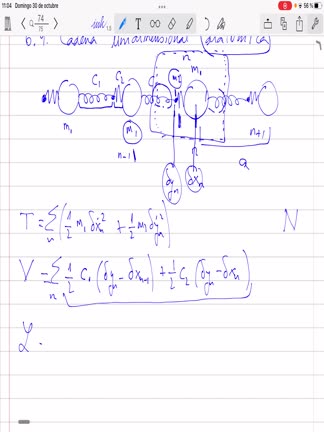 11:34 Domingo 30 de octubre
56 %
74
75
6.4. Cadena unidimensional (diatómica)
n
C₁ C₂ C₁ m₂ m₁
m₁ m₁ n n+1
n-1 a
δyₙ δxₙ
T = Σₙ (½ m₁ δẋₙ² + ½ m₂ δẏₙ²) N
V = Σₙ ½ C₁ (δyₙ - δxₙ₋₁) + ½ C₂ (δyₙ - δxₙ)
L =